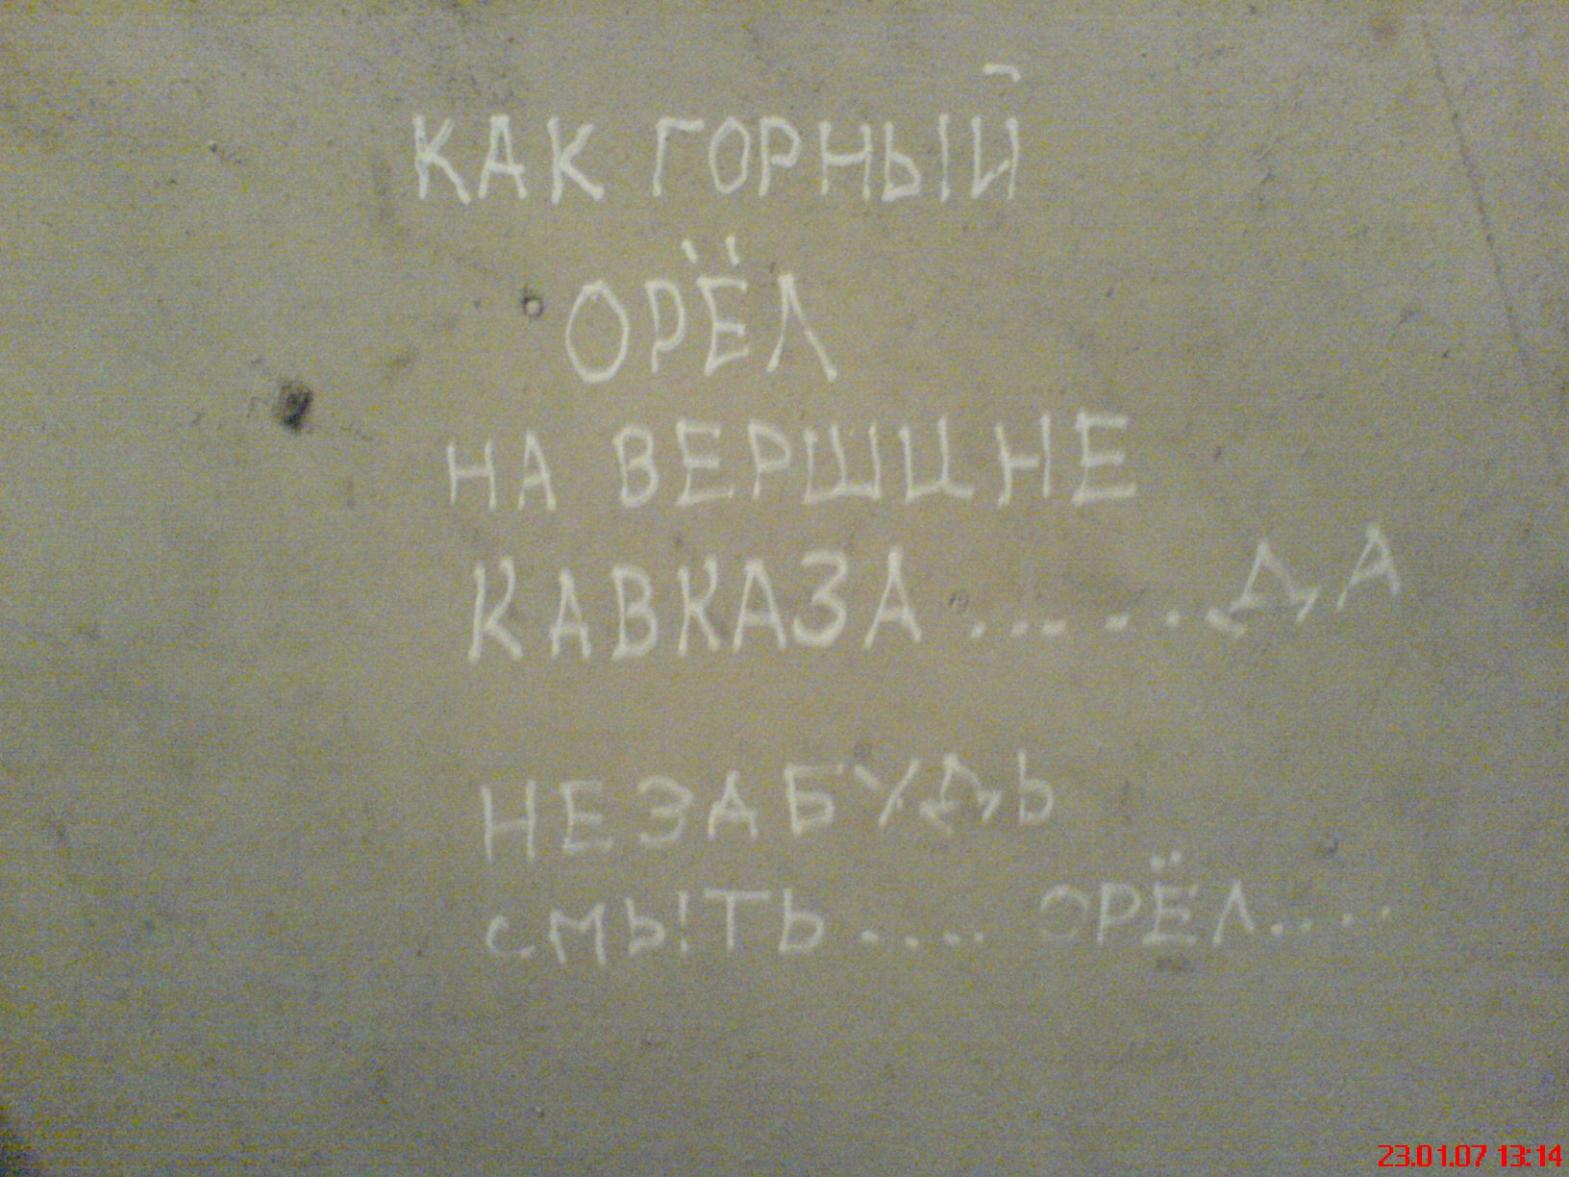 КАК ГОРНЫЙ
ОРЁЛ
НА ВЕРШЦНЕ
КАВКАЗА ......ДА
НЕЗАБУДЬ
смыть.... ОРЁЛ....
23.01.07 13:14